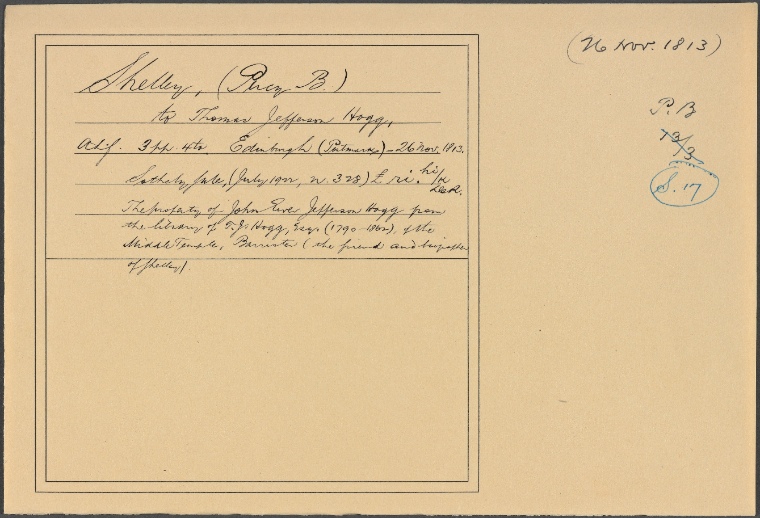 (26 Nov. 1813)
Shelley, (Percy B.)
to Thomas Jefferson Hogg,
P. B
3 pp. 4to. Edinburgh (Postmark) - 26 Nov. 1813.
S. 17
Sotheby Sale, (July 1922, n. 328) £
The property of John Jefferson Hogg from
the library of T. J. Hogg, Esq. (1790-1862), of the
Middle Temple, Barrister (the friend and biographer
of Shelley)